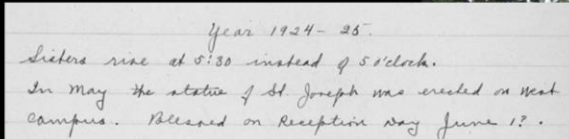 Year 1924-25.
Sisters rise at 5:30 instead of 5 o'clock.
In May the statue of St. Joseph was erected on west
campus. Blessed on Reception Day June 1?.